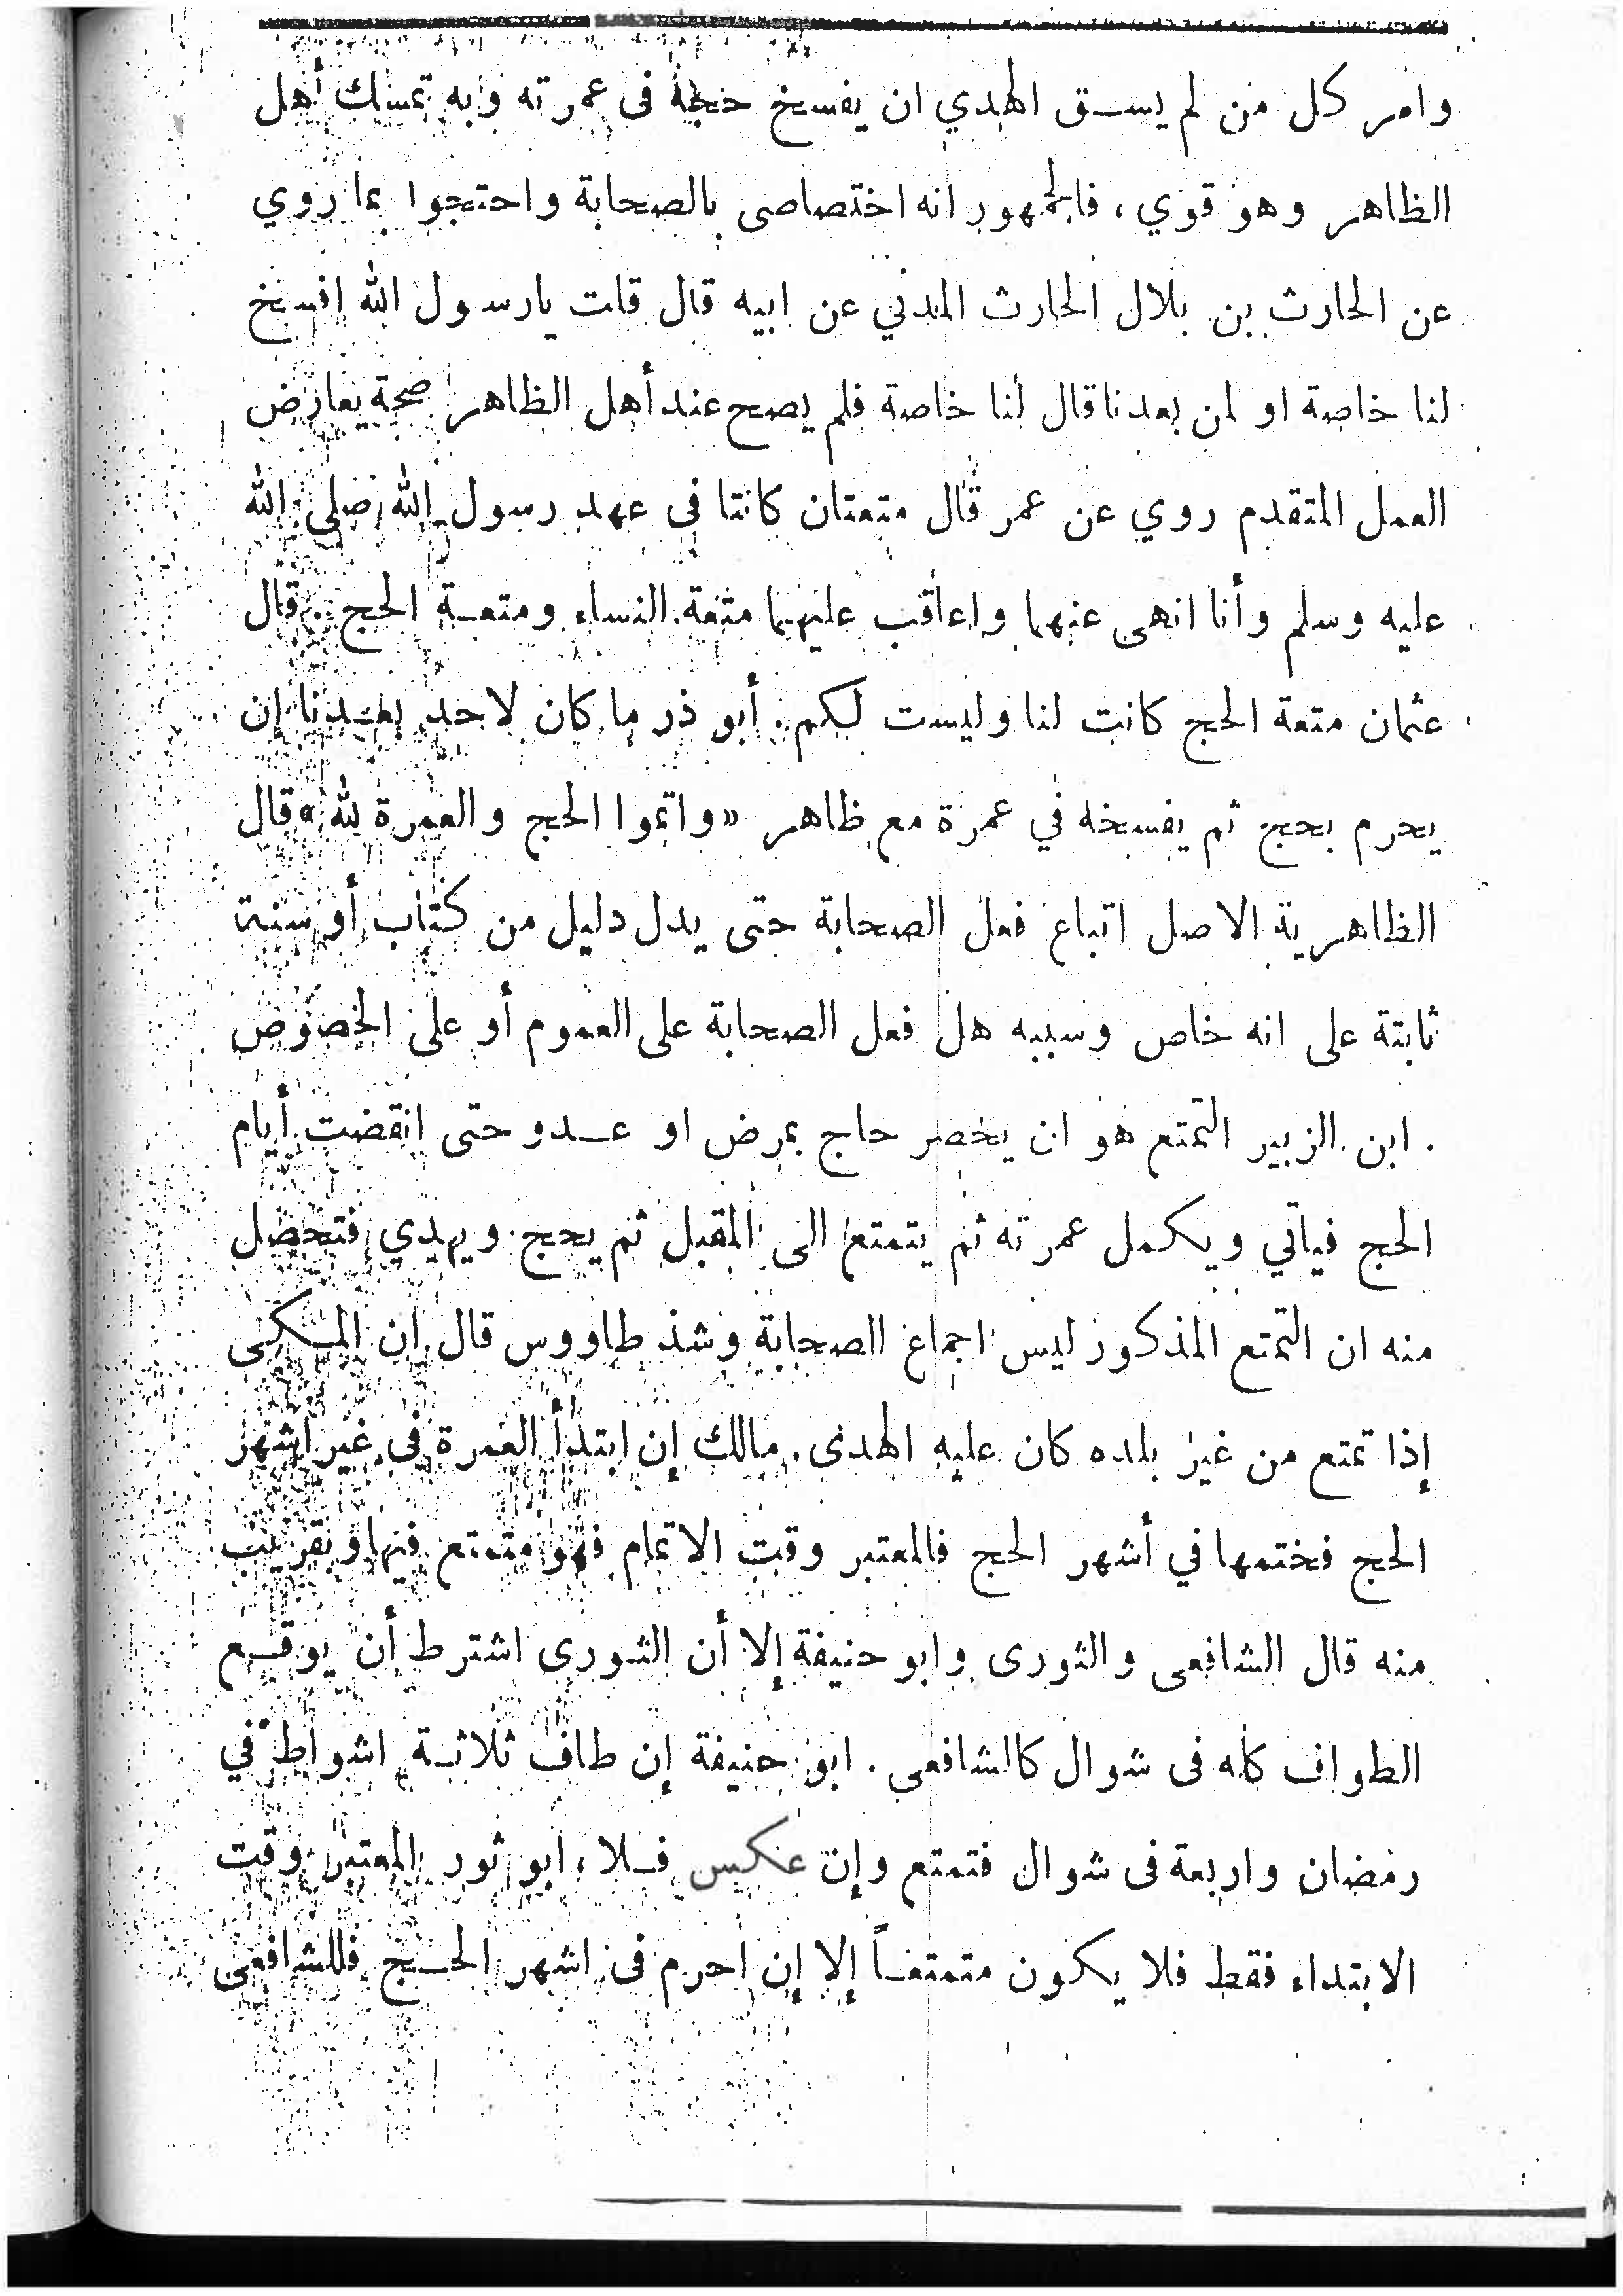 وامر كل من لم يسق الهدي ان يفسخ حجة فى عمرته وبه تمسك أهل
الظاهر وهو قوي ، فالجمهور انه اختصاصى بالصحابة واحتجوا بما روي
عن الحارث بن بلال الحارث المدني عن ابيه قال قلت يارسول الله افسخ
لنا خاصة او لمن بعدنا قال لنا خاصة فلم يصح عند أهل الظاهر صحة يعارض
العمل المتقدم روي عن عمر قال متعتان كانتا فى عهد رسول الله صلى الله
عليه وسلم وأنا انهى عنهما واعاقب عليهما متعة النساء ومتعة الحج . قال
عثمان متعة الحج كانت لنا وليست لكم . أبو ذر ما كان لاحد بعدنا إن
يحرم بحج ثم يفسخه في عمرة مع ظاهر « واتموا الحج والعمرة لله » قال
الظاهرية الاصل اتباع فعل الصحابة حتى يدل دليل من كتاب أو سنة
ثابتة على انه خاص وسببه هل فعل الصحابة على العموم أو على الخصوص
. ابن الزبير التمتع هو ان يحصر حاج بمرض او عدو حتى انقضت أيام
الحج فياتي ويكمل عمرته ثم يتمتع الى المقبل ثم يحج ويهدي فتحصل
منه ان التمتع المذكور ليس اجماع الصحابة وشذ طاووس قال ان المكى
إذا تمتع من غير بلده كان عليه الهدى . مالك إن ابتدأ العمرة فى غير اشهر
الحج فختمها في أشهر الحج فالمعتبر وقت الاتمام فهو متمتع فيها وبقريب
منه قال الشافعى والثورى وابو حنيفة إلا أن الثورى اشترط أن يوقع
الطواف كله فى شوال كالشافعى . ابو حنيفة إن طاف ثلاثة اشواط في
رمضان واربعة فى شوال فتمتع وإن عكس فلا ، ابو ثور المعتبر وقت
الابتداء فقط فلا يكون متمتعاً إلا إن احرم فى اشهر الحج فللشافعى